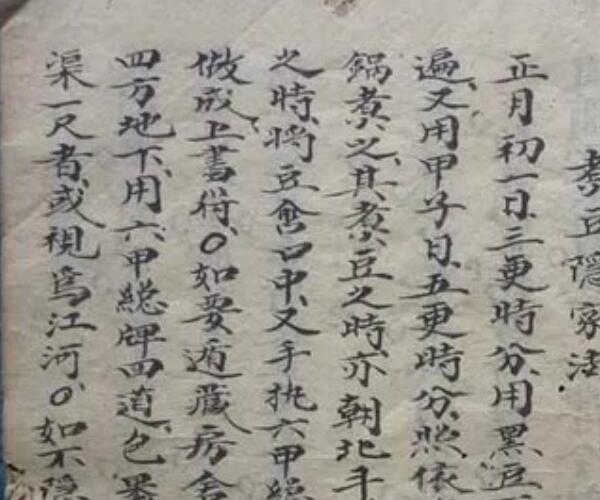 煮豆隱家法
正月初一日三更時分、用黑豆
遍、又用甲子日、五更時分、照依
鍋煮之、其煮豆之時、亦朝北斗
之時、將豆含口中、又手執六甲總
做成上書符。○如要遁藏房舍
四方地下、用六甲總牌四道、包
渠一尺者、或視為江河。○如不隱